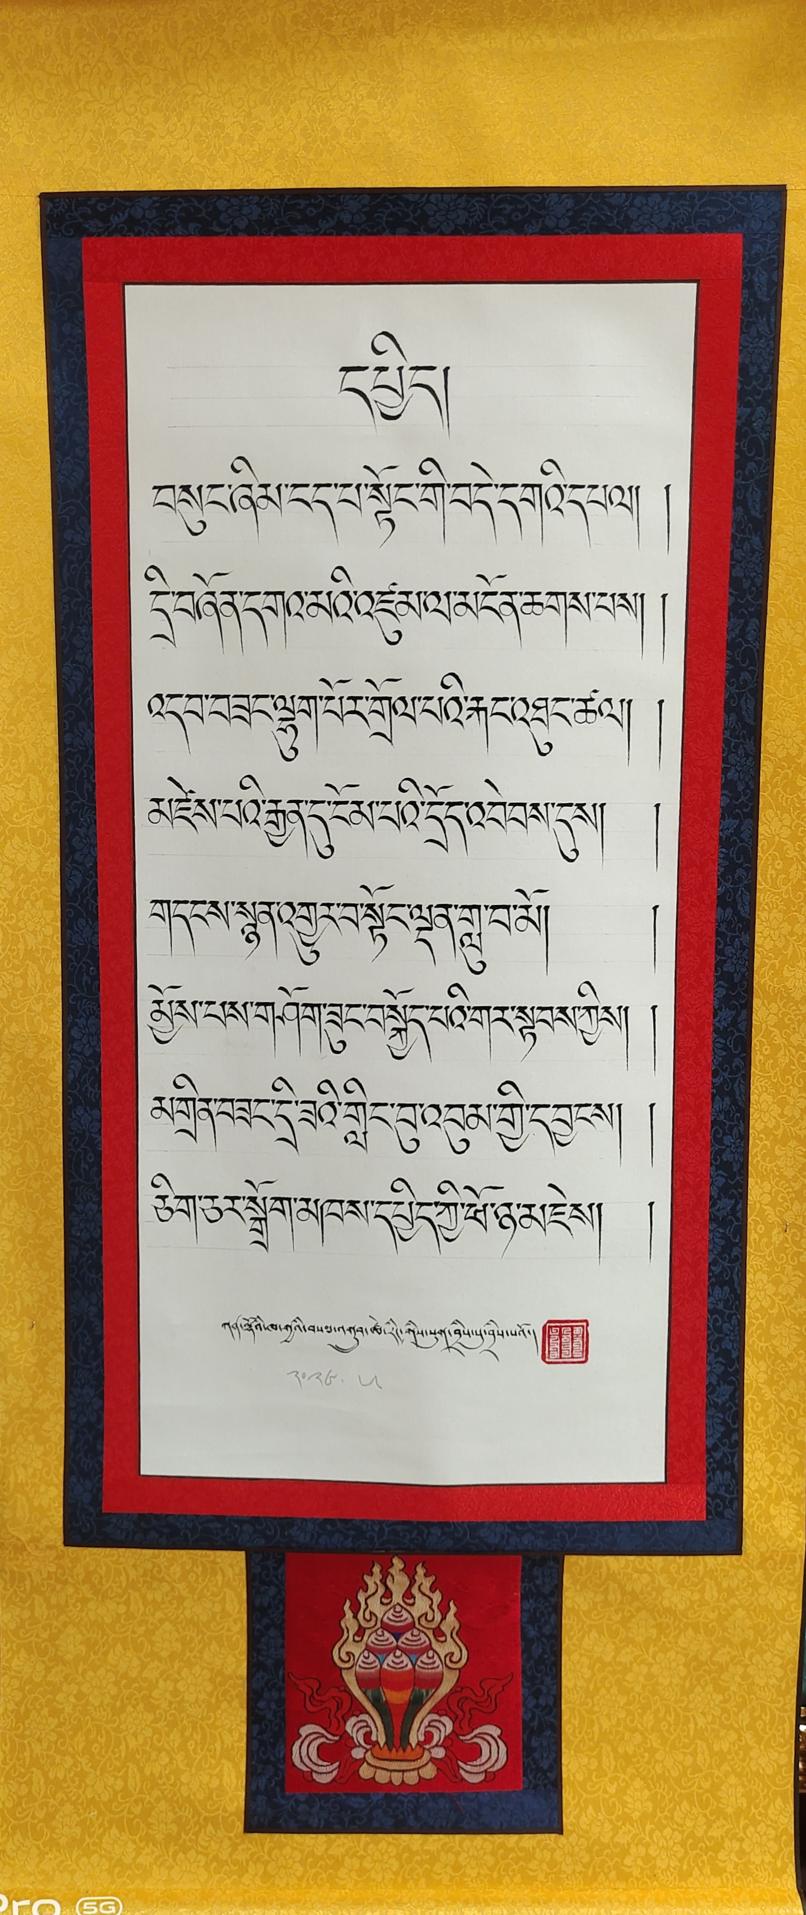 དཔྱིད།
བསུང་ཞིམ་ངད་པ་སྟོང་གི་བདེ་དགའི་དཔལ། །
དྲི་བཞོན་དགའ་མའི་འཛུམ་ལ་མངོན་ཆགས་པས། །
འདབ་བཟང་ལྷུག་པོར་གྲོལ་བའི་རྐང་འཐུང་ཚལ། །
མཛེས་པའི་རྒྱན་དུ་ངོམ་པའི་དྲོད་འབེབས་དུས། །
གདངས་སྙན་འགྱུར་བ་སྟོང་ལྡན་གླུ་བ་མོ། །
མྱོས་པས་གཤོག་ཟུང་བསྐྱོད་པའི་གར་སྟབས་ཀྱིས། །
མགྲིན་བཟང་དྲི་ཟའི་གླིང་བུ་འབུམ་གྱི་དབྱངས། །
ཅིག་ཅར་སྒྲོག་མཁས་དཔྱིད་ཀྱི་ཕོ་ཉ་མཇེས། །
༢༠༢༤.༥
Pro 5G